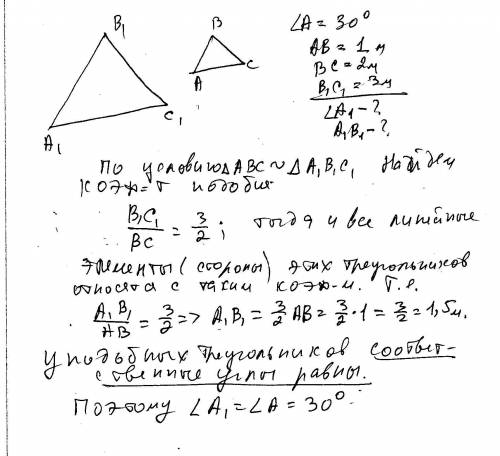 B₁
B
A
C
A₁
C₁
∠A = 30°
AB = 1 м
BC = 2м
B₁C₁ = 3м
∠A₁ - ?
A₁B₁ - ?
По условию △ABC ~ △A₁B₁C₁ Найдем
коэф-т подобия
B₁C₁/BC = 3/2 ; тогда и все линейные
элементы (стороны) этих треугольников
относятся с таким коэф-м. Т.е.
A₁B₁/AB = 3/2 => A₁B₁ = 3/2 AB = 3/2 · 1 = 3/2 = 1,5м.
У подобных треугольников соответ-
ственные углы равны.
Поэтому ∠A₁ = ∠A = 30°.